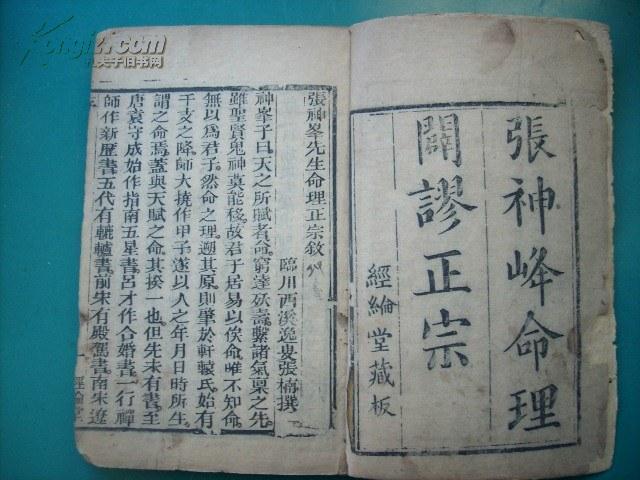 張神峰命理
闢謬正宗
經綸堂藏板
張神峯先生命理正宗敘
臨川西溪逸叟張楠撰
神峯子曰天之所賦者命窮達殀壽繫諸氣稟之先
雖聖賢鬼神莫能移故君子居易以俟命唯不知命
無以爲君子然命之理遡其原則肇於軒轅氏始有
干支之降師大撓作甲子遂以人之年月日時所生
謂之命焉蓋與天賦之命其揆一也但先未有書至
唐袁守成始作指南五星書呂才作合婚書一行禪
師作新歷書五代有轆轤書前宋有殿駕書南宋遼
一 經綸堂
Kongfz.com
孔夫子旧书网